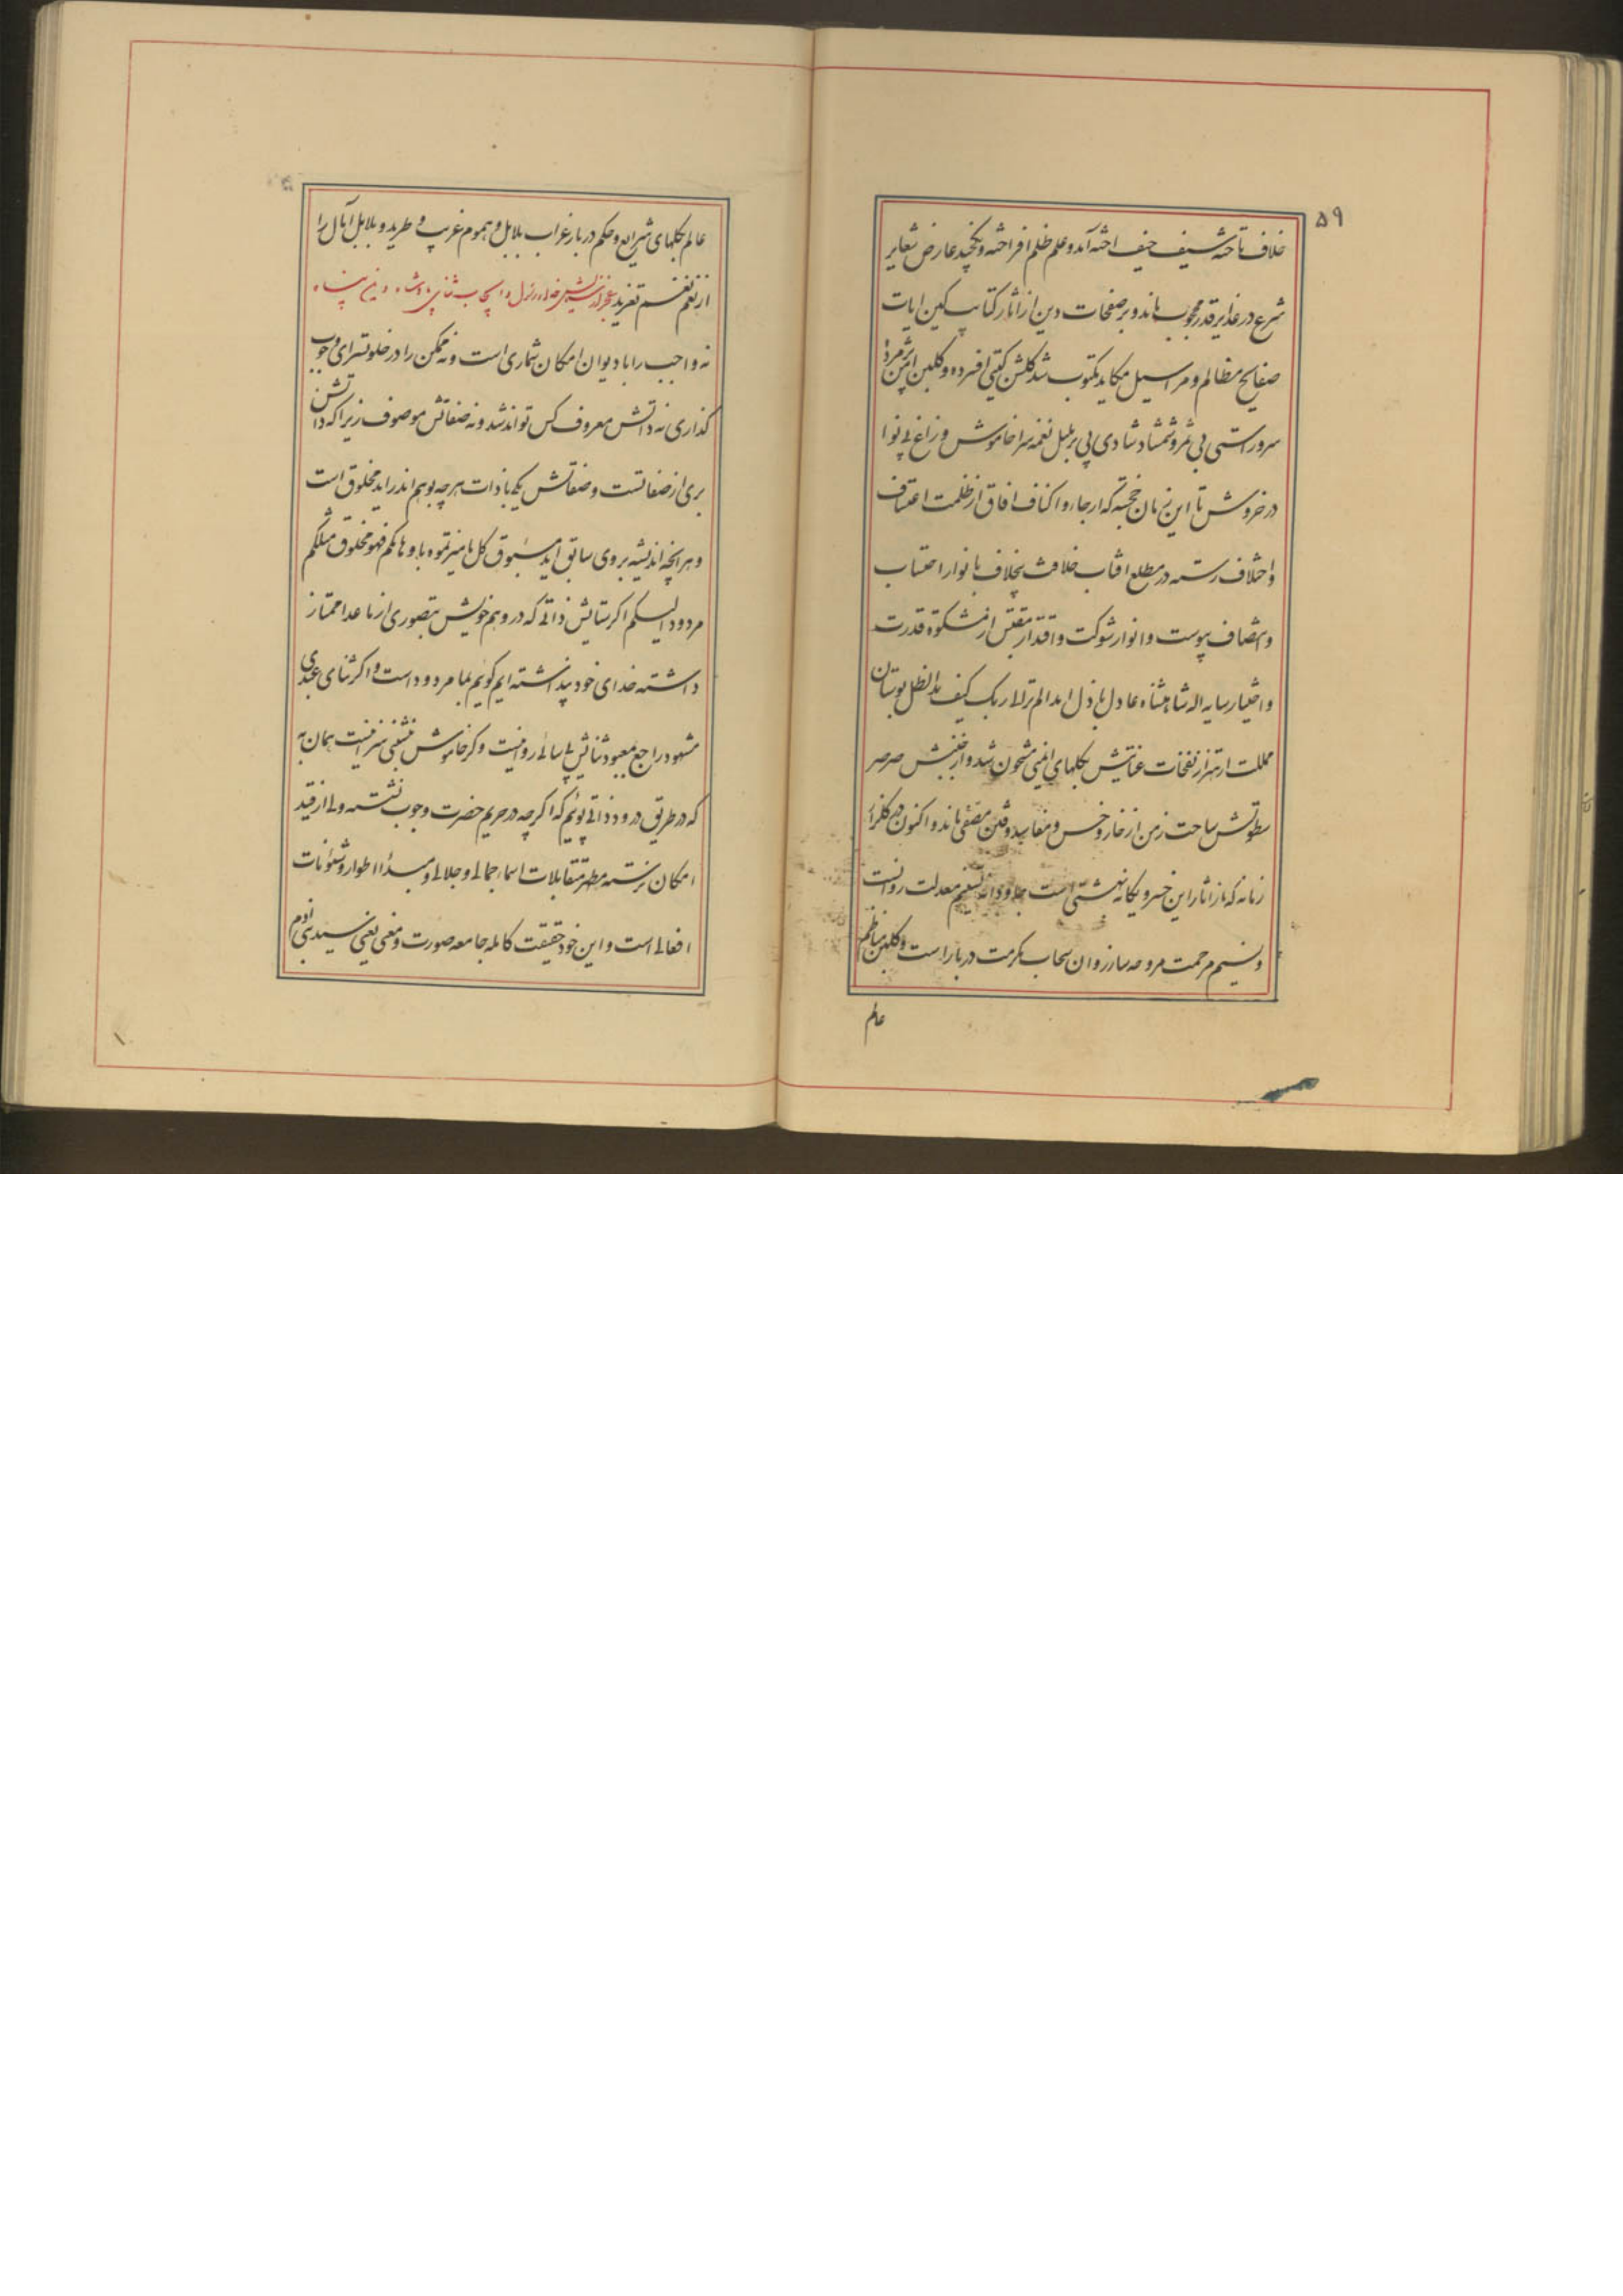 ۵۹
خلاف تاخته شد سیف حیف اخته آمد و علم ظلم افراخته و یکچند عارض شعایر
شرع در غدایر قدر محجوب ماند و بر صفحات دین از اثار کتایب کین ایات
صفایح مظالم و مراسیل مکاید مکتوب شد کلشن کیتی افسرده و کلبن ایمن پژمرده
سرو راستی بی ثمر و شمشاد شادی بی بر بلبل نغمه سرا خاموش و زاغ بی نوا
در خروش تا این زمان خجسته که ارجاء و اکناف افاق از ظلمت اعتساف
و اختلاف رسته در مطلع افتاب خلافت بخلاف با نوار احتساب
و انتصاف پیوست و انوار شوکت و اقتدار مقتبس از مشکوة قدرت
و اختیار سایه اله شاهنشاه عادل باذل ابد الم تر الا ربک کیف مد الظل بوستان
مملکت از اهتزاز نفخات عنایتش بکلهای ایمنی مشحون شد و از جنبش صرصر
سطوتش ساحت زمن از خار و خس و مفاسد و فتن مصفی ماند و اکنون در کلزار
زمانه که از اثار این خسرو یکانه بهشتی است جاودانه تسنیم معدلت روانست
و نسیم مرحمت مروحه ساز روان سحاب مکرمت دربار است و کلبن مناظم
عالم
عالم بکلهای شرایع و حکم دربار غراب بلابل و هموم غریب و طرید و بلابل آمال را
از نغم نغم تغرید
نه واجب را با دیوان امکان شماری است و نه ممکن را در خلوتسرای وجوب
کذاری نه ذاتش معروف کس تواند شد و نه صفاتش موصوف زیرا که ذاتش
بری از صفاتست و صفاتش یکی با ذات هر چه بوهم اندر اید مخلوق است
و هر انچه اندیشه بر وی سابق اید مسبوق کل ما میزتموه باوهامکم فهو مخلوق مثلکم
مردود الیکم اکر ستایش ذاتی که در وهم خویش بتصوری از ما عدا ممتاز
داشته خدای خود پنداشته ایم کوئیم بما مردود است و اکر ثنای عبدی
مشهود راجع بمعبود ثنائش بی سائی روا نیست و کر خاموش نشینی سزا نیست همان به
که در طریق درود ذاتی پوئیم که اکر چه در حریم حضرت وجوب ننشسته ولی از قید
امکان برسته مظهر متقابلات اسماء جمالی و جلالی و مبدأ اطوار و شئونات
افعالی است و این خود حقیقت کامله جامعه صورت و معنی یعنی سید بنی آدم